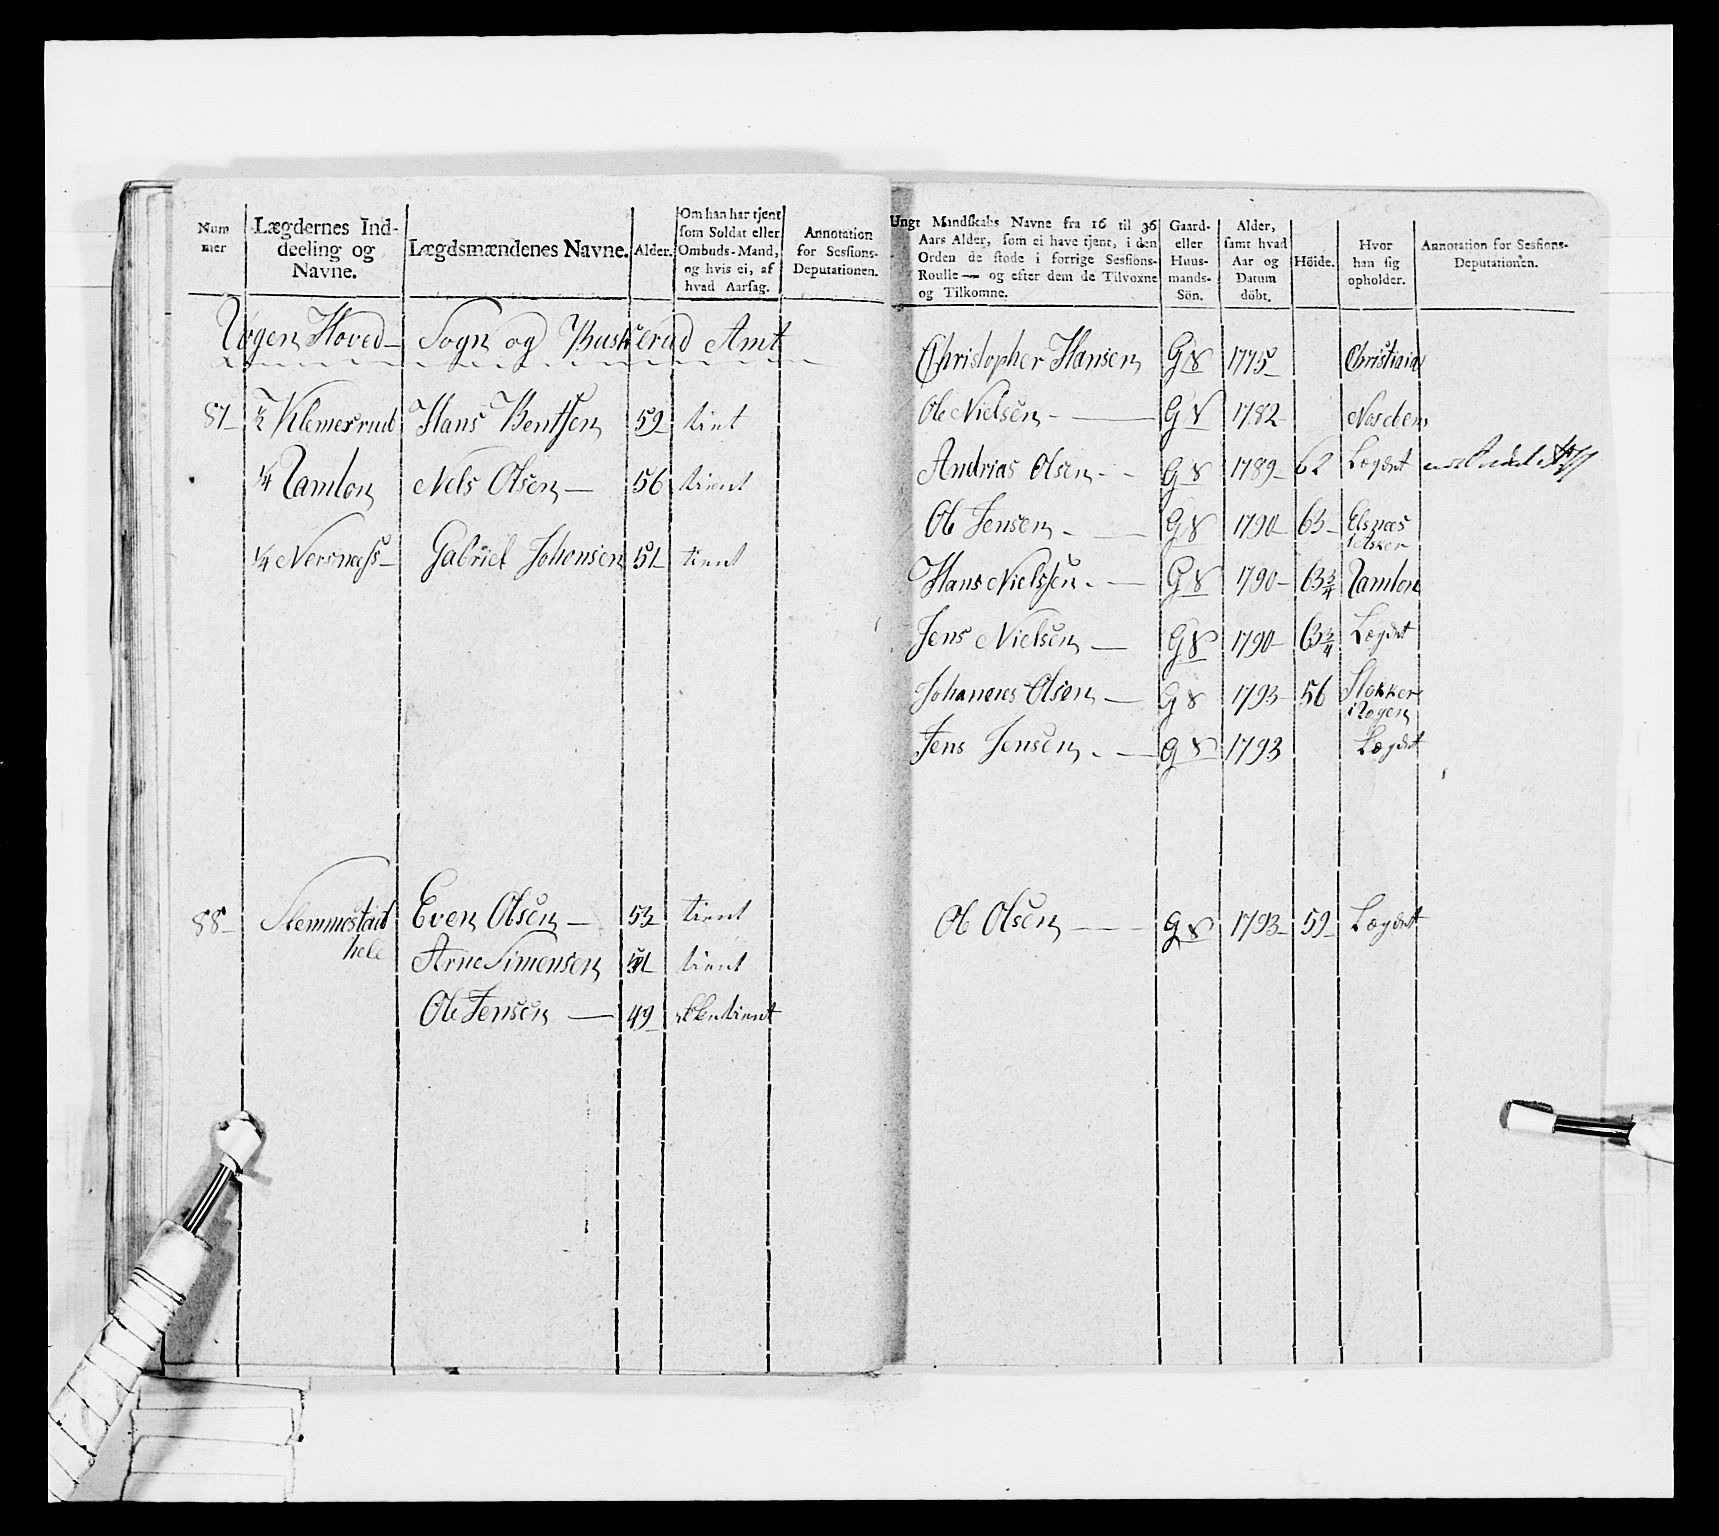 Num mer
Lægdernes Ind-
deeling og
Navne.
Lægdsmændenes Navne.
Alder.
Om han har tjent
som Soldat eller
Ombuds-Mand,
og hvis ei, af
hvad Aarsag.
Annotation
for Sessions-
Deputationen.
Røgen Hoved- Sogn og Buskerud Amt
87 ½ Klemesrud Hans Bentsen 59 tient
¼ Ramton Nels Olsen 56 tient
¼ Nersnæss Gabriel Johansen 51 tient
88 Slemmestad Even Olsen 53 tient
hele Arne Simensen 51 tient
Ole Jensen 49 ikke tient
Ungt Mandskabs Navne fra 16 til 36
Aars Alder, som ei have tjent, i den
Orden de stode i forrige Sessions-
Roulle — og efter dem de Tilvoxne
og Tilkomne.
Gaard-
eller
Huus-
mands-
Sön.
Alder,
samt hvad
Aar og
Datum
döbt.
Höide.
Hvor
han sig
opholder.
Annotation for Sessions-
Deputationen.
Christopher Hansen GS 1775 Christiania
Ole Nielsen GS 1782
Andrias Olsen GS 1789 62 Lægdet
Ole Jensen GS 1790 63 Elsnæs
i Asker
Hans Nielssen GS 1790 63¾ Ramton
Jens Nielsen GS 1790 63¾ Lægdet
Johannes Olsen GS 1793 56 Stokker
i Røgen
Jens Jensen GS 1793 Lægdet
Ole Olsen GS 1793 59 Lægdet